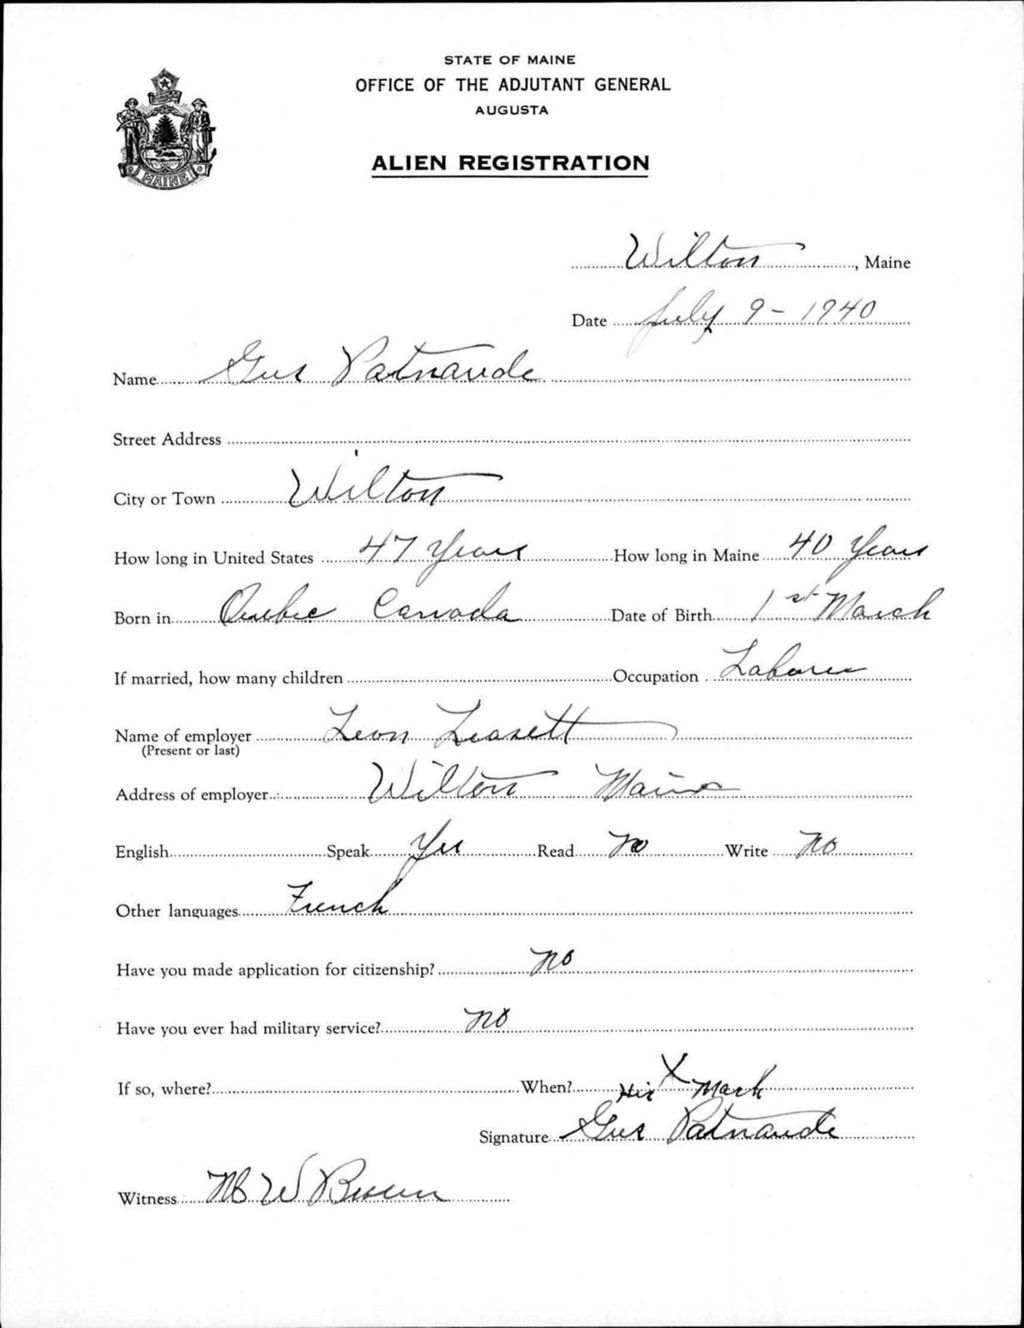 STATE OF MAINE
OFFICE OF THE ADJUTANT GENERAL
AUGUSTA
ALIEN REGISTRATION
MAINE
Wilton, Maine
Date July 9 - 1940
Name Gus Patnaude
Street Address
City or Town Wilton
How long in United States 47 Years How long in Maine 40 Years
Born in Quebec Canada Date of Birth 1st March
If married, how many children Occupation Laborer
Name of employer Leon
(Present or last)
Address of employer Wilton Maine
English Speak Yes Read No Write No
Other languages French
Have you made application for citizenship? No
Have you ever had military service? No
If so, where? When? His X Mark
Signature Gus Patnaude
Witness W